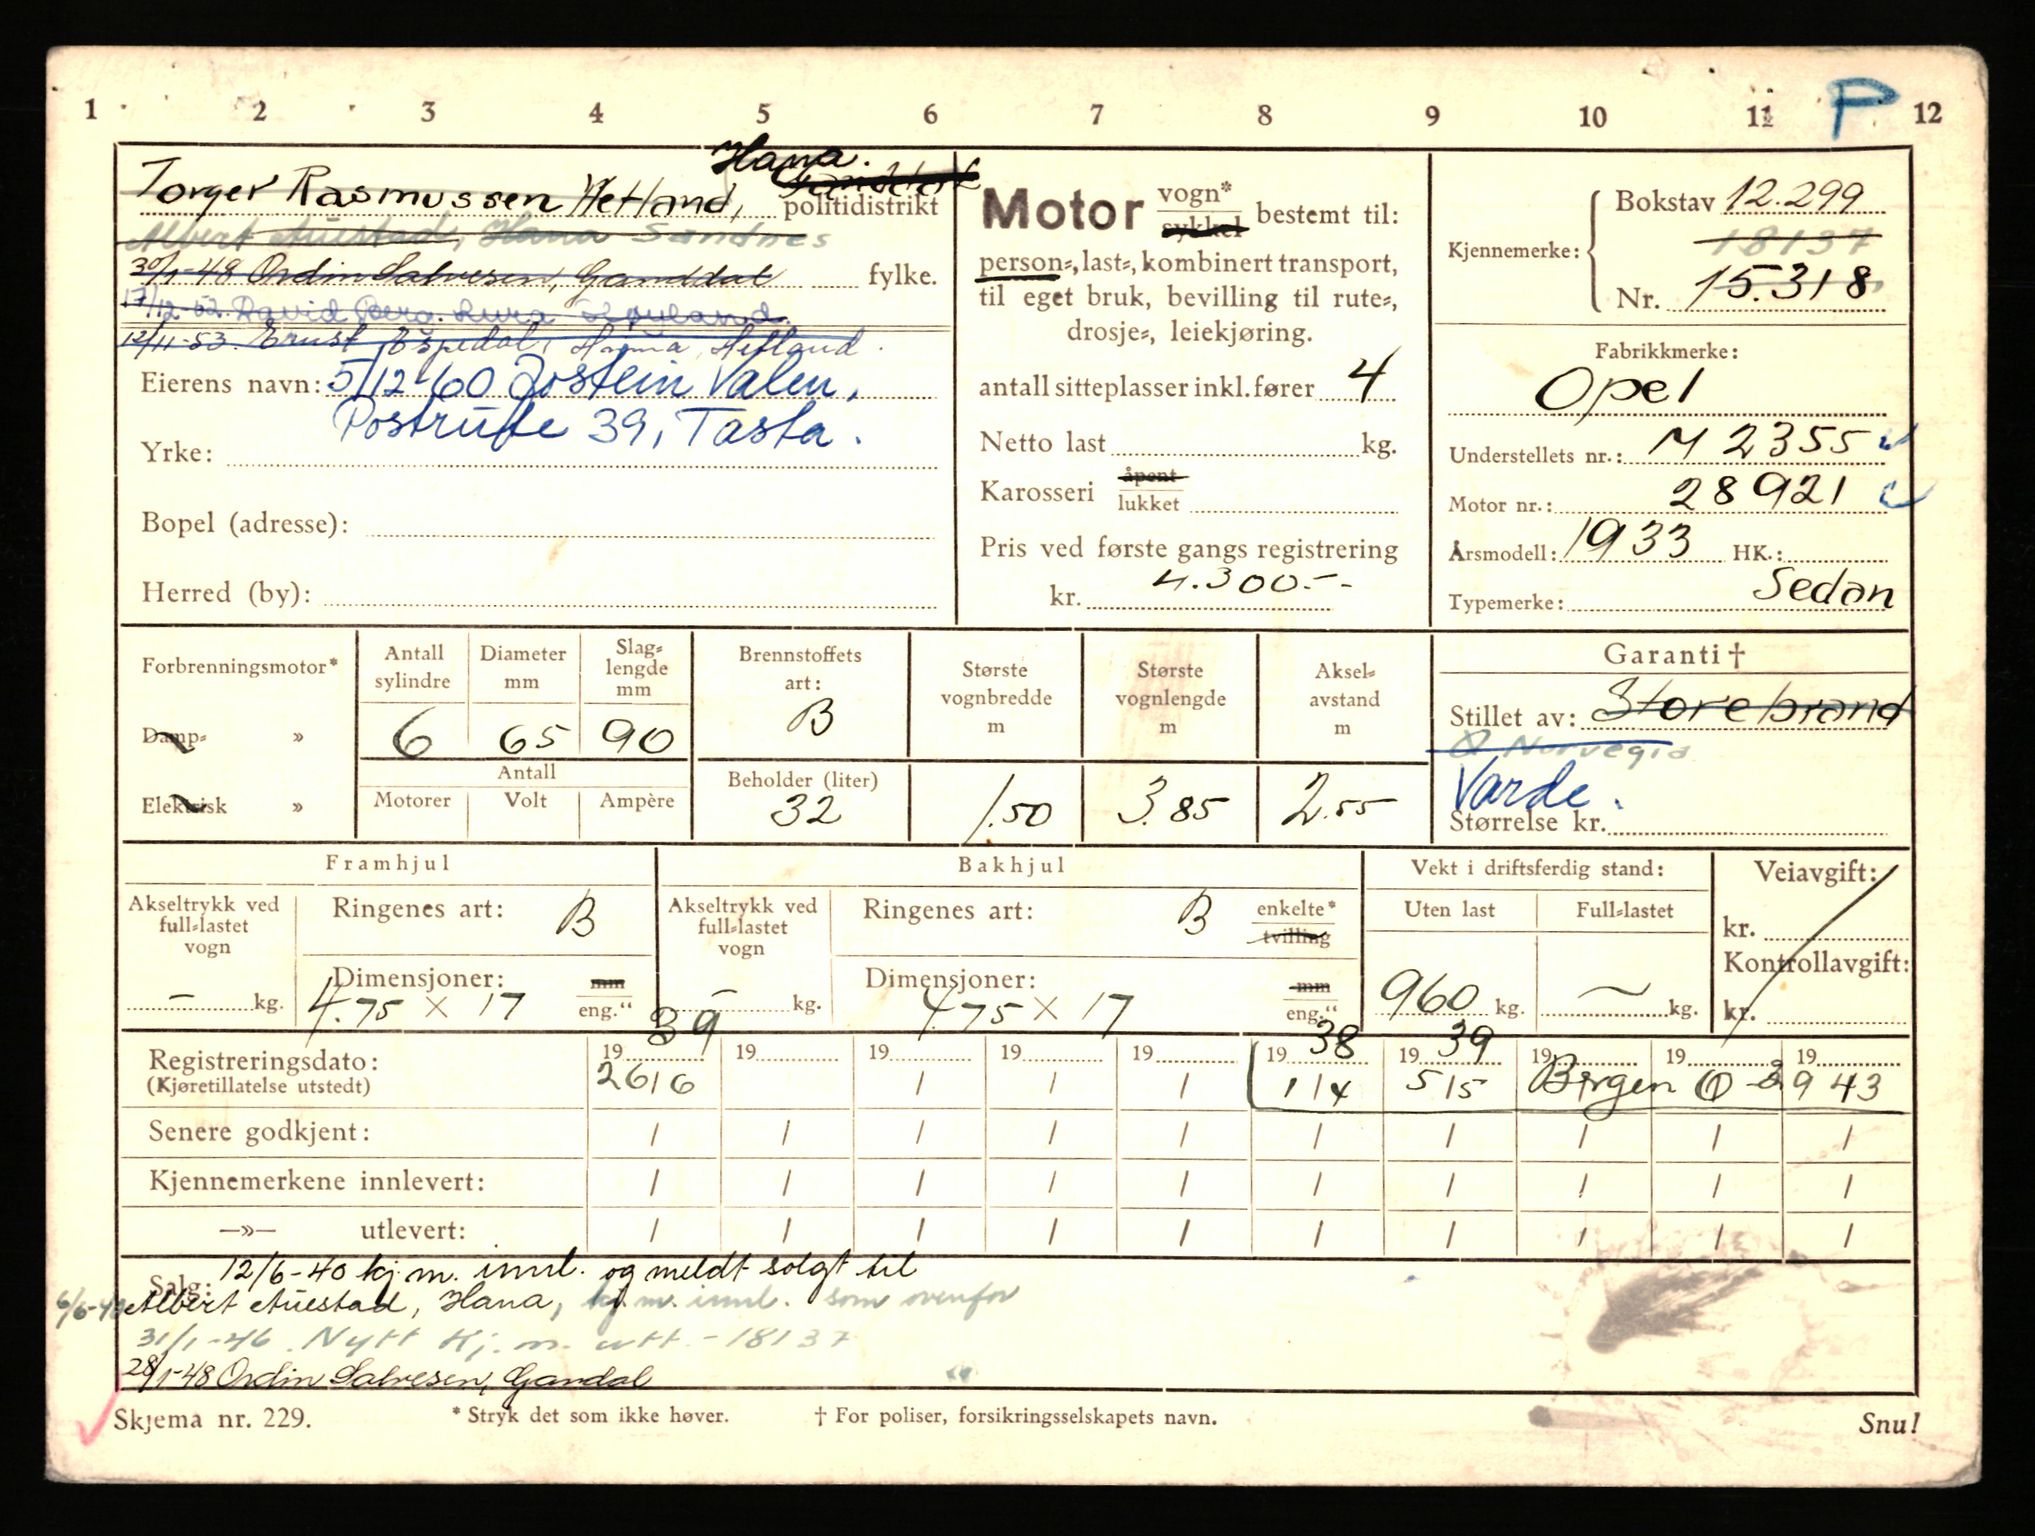 1 2 3 4 5 6 7 8 9 10 11 12
P
Hana.
Torger Rasmussen Hetland, politidistrikt
Albert Auestad, Hana Sandnes
30/1-48 Ordin Salvesen, Ganddal fylke.
17/12-52. David Berg. Lura Høyland.
12/11-53. Ernst Espedal, Hetland.
Eierens navn: 5/12-60 Jostein Valen,
Postrute 39, Tasta.
Yrke:
Bopel (adresse):
Herred (by):
Motor vogn* sykkel bestemt til:
person-, last-, kombinert transport,
til eget bruk, bevilling til rute-,
drosje-, leiekjøring.
antall sitteplasser inkl. fører 4
Netto last kg.
Karosseri åpent lukket
Pris ved første gangs registrering
kr. 4.300.--
Kjennemerke: Bokstav 12.299
18137
Nr. 15.318
Fabrikkmerke:
Opel
Understellets nr.: M 2355
Motor nr.: 28921
Årsmodell: 1933 HK.:
Typemerke: Sedan
Forbrenningsmotor*
Damp- »
Elektrisk »
Antall sylindre Diameter mm Slag-lengde mm
6 65 90
Antall
Motorer Volt Ampère
Brennstoffets art:
B
Beholder (liter)
32
Største vognbredde m
1.50
Største vognlengde m
3.85
Aksel-avstand m
2.55
Garanti †
Stillet av: Storebrand
Norvegia
Varde.
Størrelse kr.
Framhjul
Akseltrykk ved full-lastet vogn
– kg.
Ringenes art: B
Dimensjoner: mm
4.75 × 17 eng."
Bakhjul
Akseltrykk ved full-lastet vogn
– kg.
Ringenes art: B enkelte* tvilling
Dimensjoner: mm
4.75 × 17 eng."
Vekt i driftsferdig stand:
Uten last Full-lastet
960 kg. kg.
Veiavgift:
kr.
Kontrollavgift:
kr.
Registreringsdato: 19 39 19 19 19 19 19 38 19 39 19 19 19
(Kjøretillatelse utstedt) 26/6 / / 1/4 5/5 Birgen 943
Senere godkjent: / / / / / / / / / /
Kjennemerkene innlevert: / / / / / / / / / /
—»— utlevert: / / / / / / / / / /
Salg: 12/6-40 kj.m. innl. og meldt solgt til
Albert Auestad, Hana, kj.m. innl. som ovenfor
31/1-46. Nytt kj.m. utt. - 18137
28/1-48 Ordin Salvesen, Gandal
Skjema nr. 229. * Stryk det som ikke høver. † For poliser, forsikringsselskapets navn. Snu!